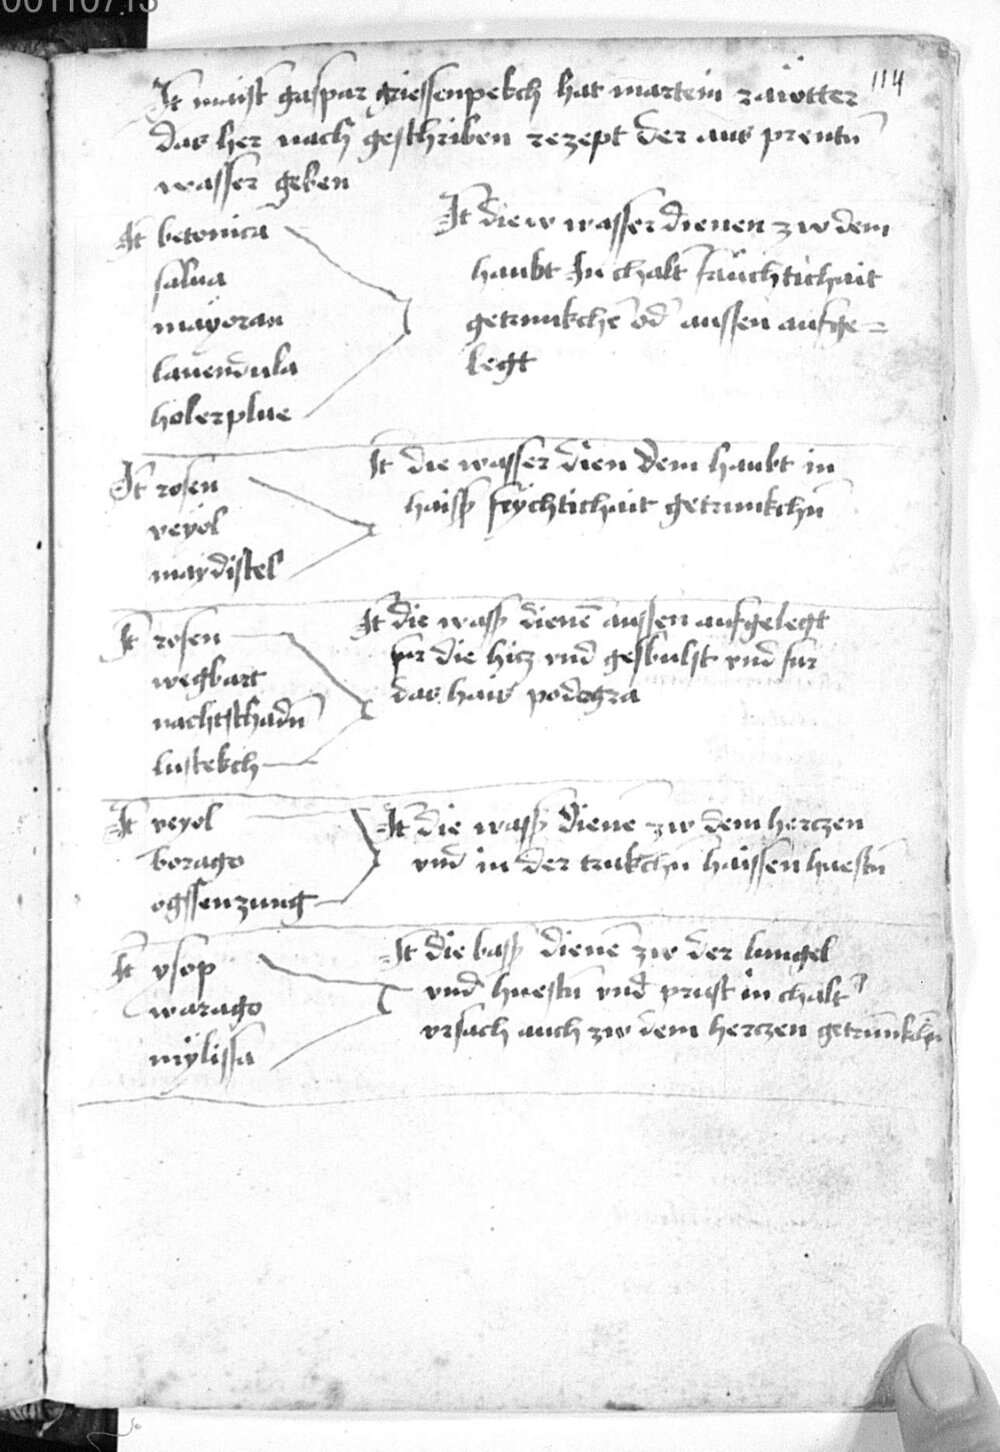 00110713
114
It maist gaspar griessenpekch hat martein zaüotter
das her nach geschriben rezept der aus prentn
wasser geben
It betonica
salua
mayoran
lauendula
holerplue
It die w wasser dienen zw dem
haubt In chalt fäuchtichait
getrunkchn od aussen aufge=
legt
It rosen
veyol
maydistel
It die wasser dien dem haubt in
haiss feychtichait getrunkchn
It rosen
wegbart
nachtschadn
lustekch
It die wass dienen aussen aufgelegt
fur die hicz vnd geschulst vnd fur
das hais podegra
It veyol
borago
ogssenzung
It die wass diene zw dem herczen
vnd in der trukchn haissen huestn
It ysop
warago
mylissa
It die bass dienen zw der lungel
vnd huestn vnd prust in chalt
vrsach auch zw dem herczen getrunkchn